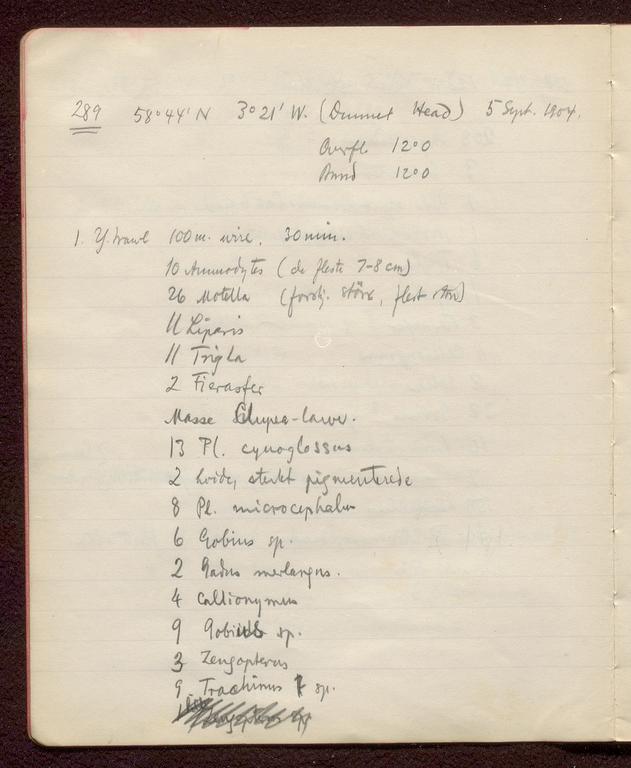 289 58°44'N 3°21'W. (Dunnet Head) 5 Sept. 1904.
Overfl. 12°0
Bund 12°0
1. Y. trawl 100 m. wire, 30 min.
10 Ammodytes (de fleste 7-8 cm)
26 Motella (forskj. størr, flest
11 Liparis
11 Trigla
2 Fierasfer
Masse Clupea-larver.
13 Pl. cynoglossus
2 hvide, sterkt pigmenterede
8 Pl. microcephalus
6 Gobius sp.
2 Gadus merlangus.
4 Callionymus
9 Gobius sp.
3 Zeugopterus
9 Trachinus sp.